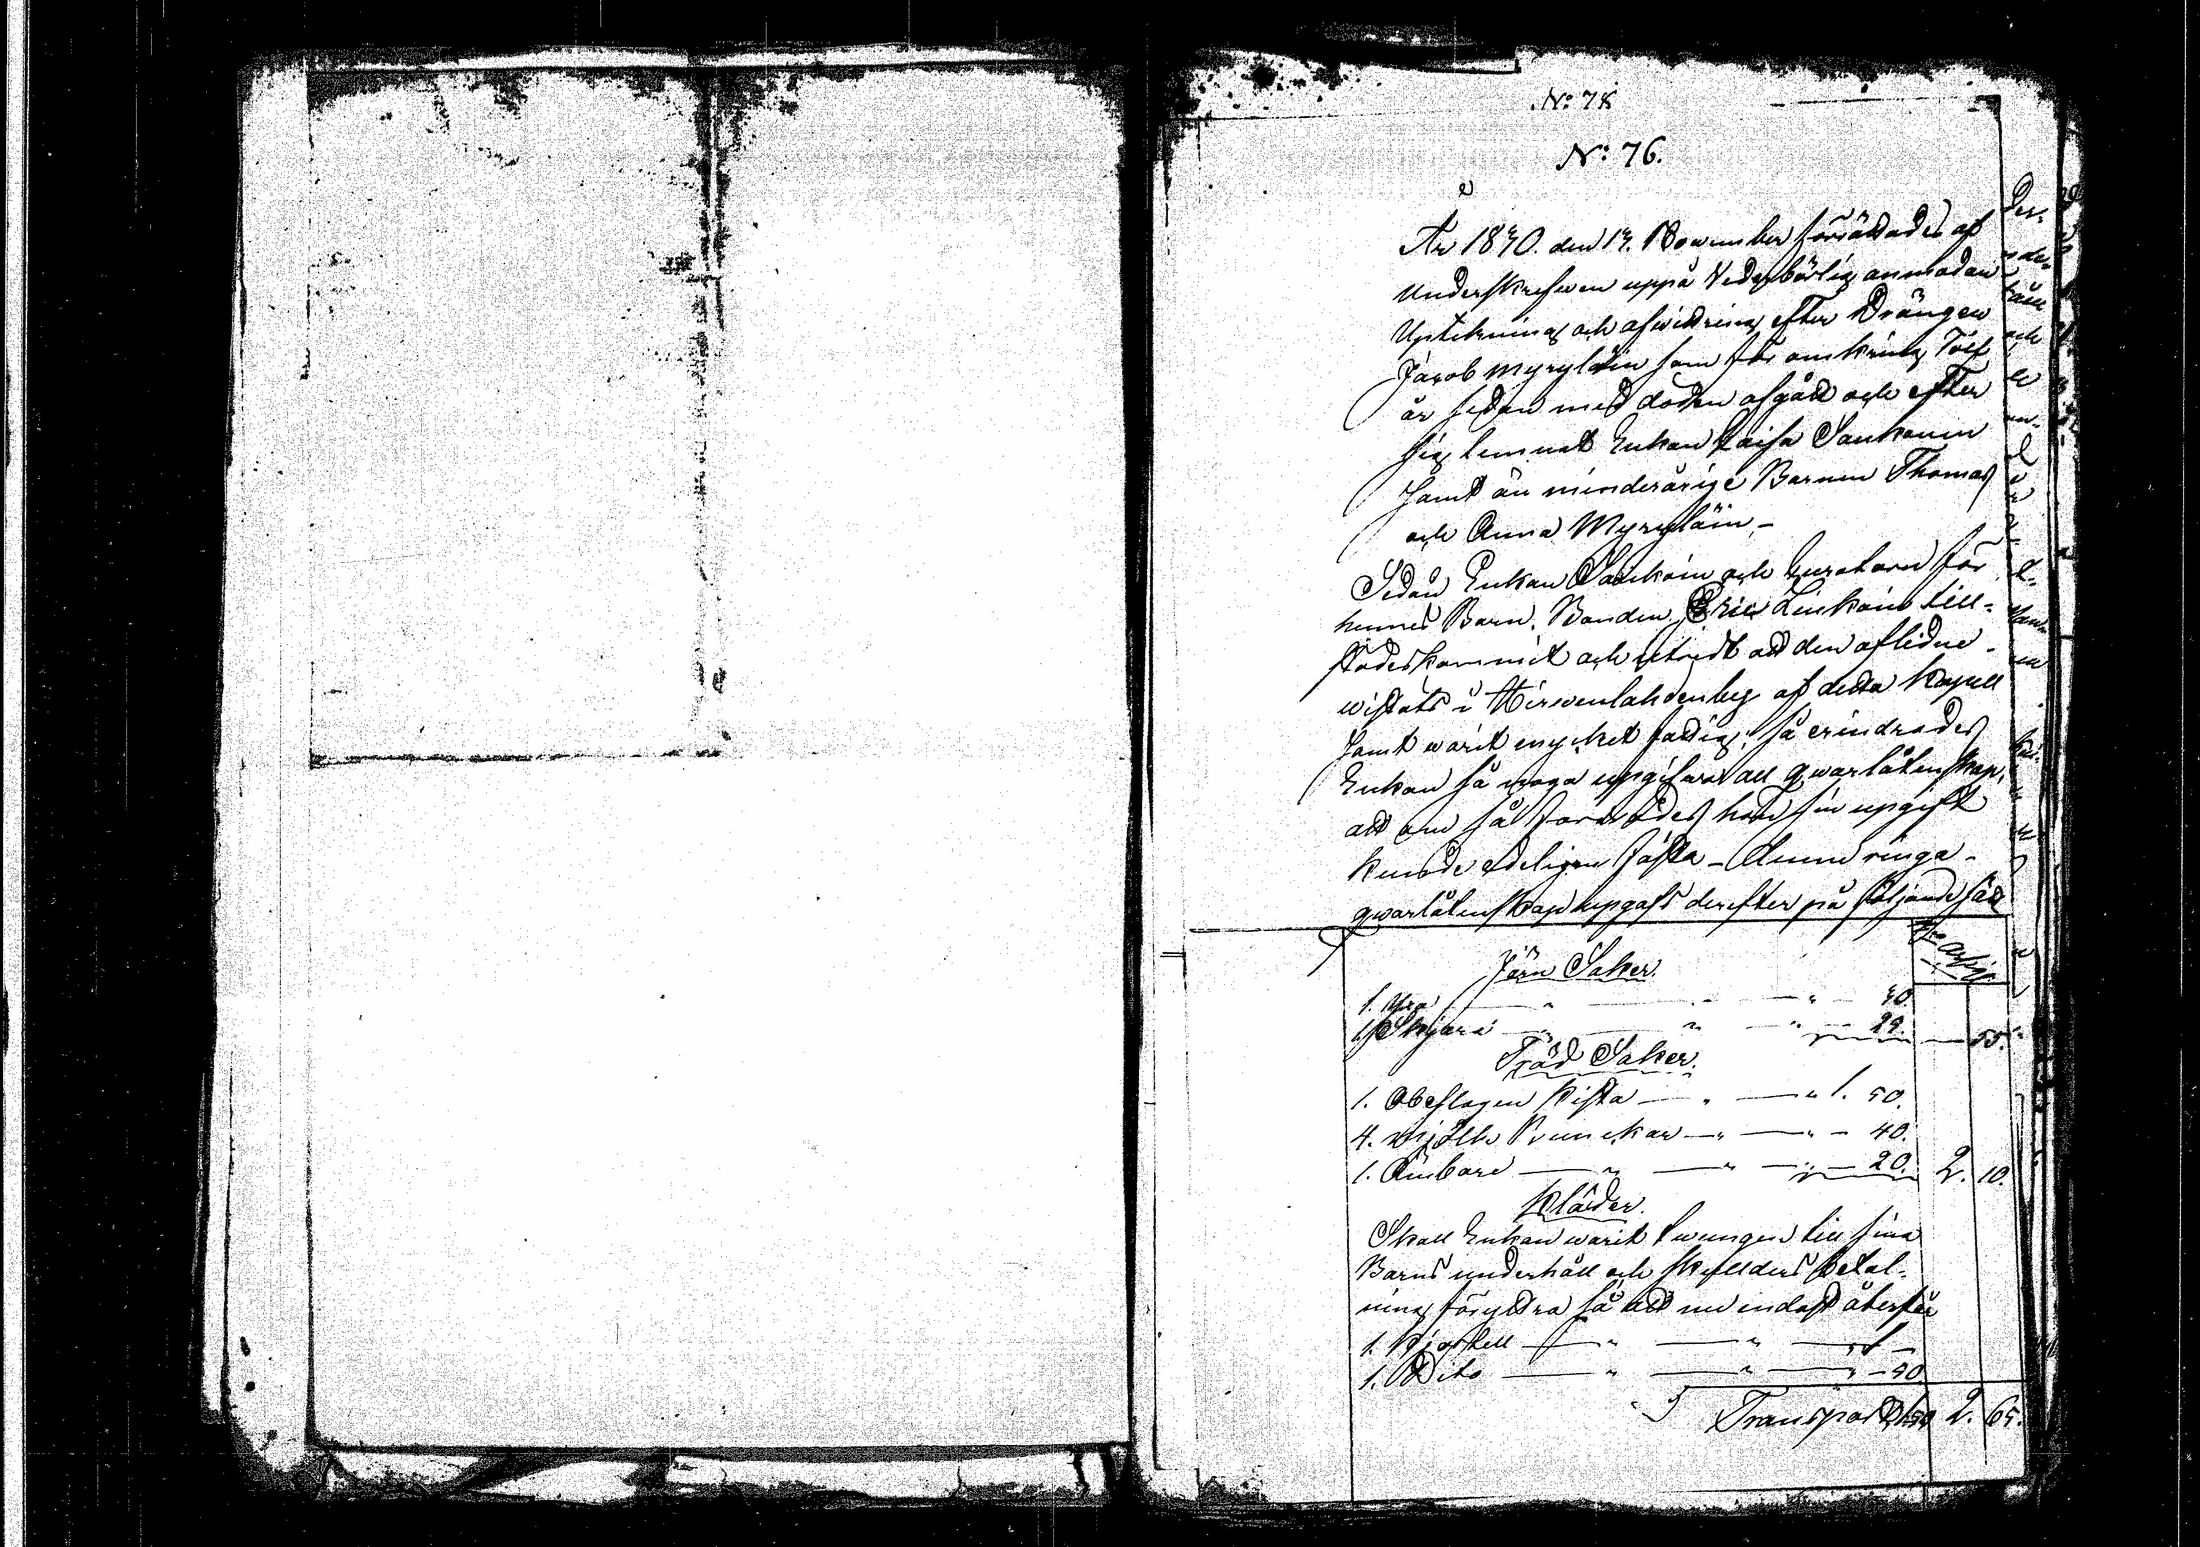 No: 78
No: 76.
År 1850. den 15. November förrättades af
Underskrefwen uppå Vederbörlig anmodan
Uptekning och afwittring efter Drängen
Jacob Myryläin som för omkring Tolf
år sedan med döden afgått och efter
sig lemnat Enkan Caisa Saukonen
samt än minderårige Barnen Thomas
och Anna Myryläin –
Sedan Enkan Saukoin och Curatorn för
hennes Barn, Bonden Eric Linkoin till-
städeskommit och utredt att den aflidne
wistats i Hirwenlahden by af detta Kapell
samt warit mycket fattig; så erindrades
Enkan så noga uppgifwa all qwarlåtenskap,
att om så fordrades hon sin uppgift
kunde edeligen fästa – Denne ringa
qwarlåtenskap upgafs derefter på följande sätt
Järn Saker.
1. Yxa — " — " — 30.
1. Skjära — " — " — 25. — 55.
Träd Saker.
1. Obeslagen Kista — " — " 1. 50.
4. Mjölk Bunckar — " — " — 40.
1. Ämbare — " — " — 20. 2. 10.
Kläder.
Skall Enkan warit twungen till sina
Barns underhåll och skyllders betal-
ning föryttra så att nu endast återstår
1. Kjortell — " — " — 1 –
1. Dito — " — " — 50
Transport 1. 50 2. 65.